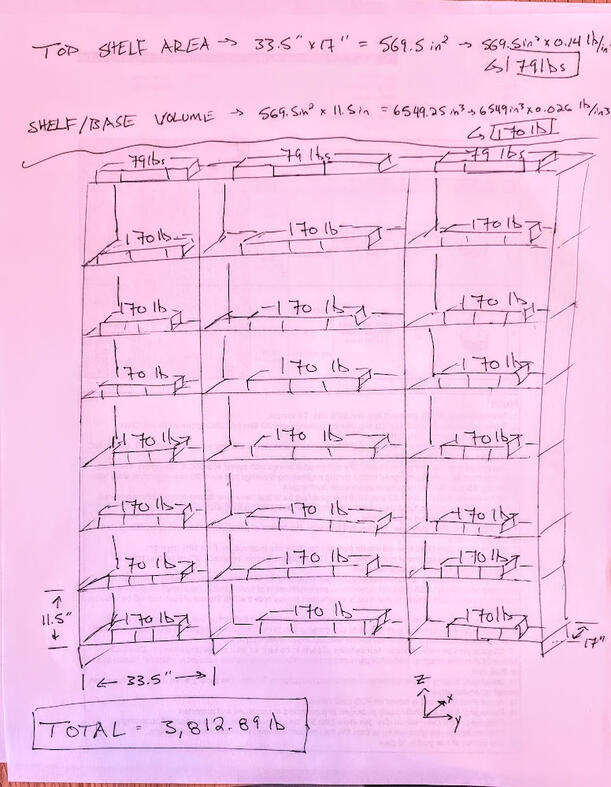 TOP SHELF AREA → 33.5" x 17" = 569.5 in² → 569.5in² x 0.14 lb/in
↳ 79 lbs
SHELF/BASE VOLUME → 569.5in² x 11.5in = 6549.25in³ → 6549in³ x 0.026 lb/in3
↳ 170 lb
79lbs 79 lbs 79 lbs
170 lb 170 lb 170 lb
170 lb 170 lb 170 lb
170 lb 170 lb 170 lb
170 lb 170 lb 170 lb
170 lb 170 lb 170 lb
170 lb 170 lb 170 lb
11.5" 170 lb 170 lb 170lb 17"
← 33.5" →
z x y
TOTAL = 3,812.89 lb